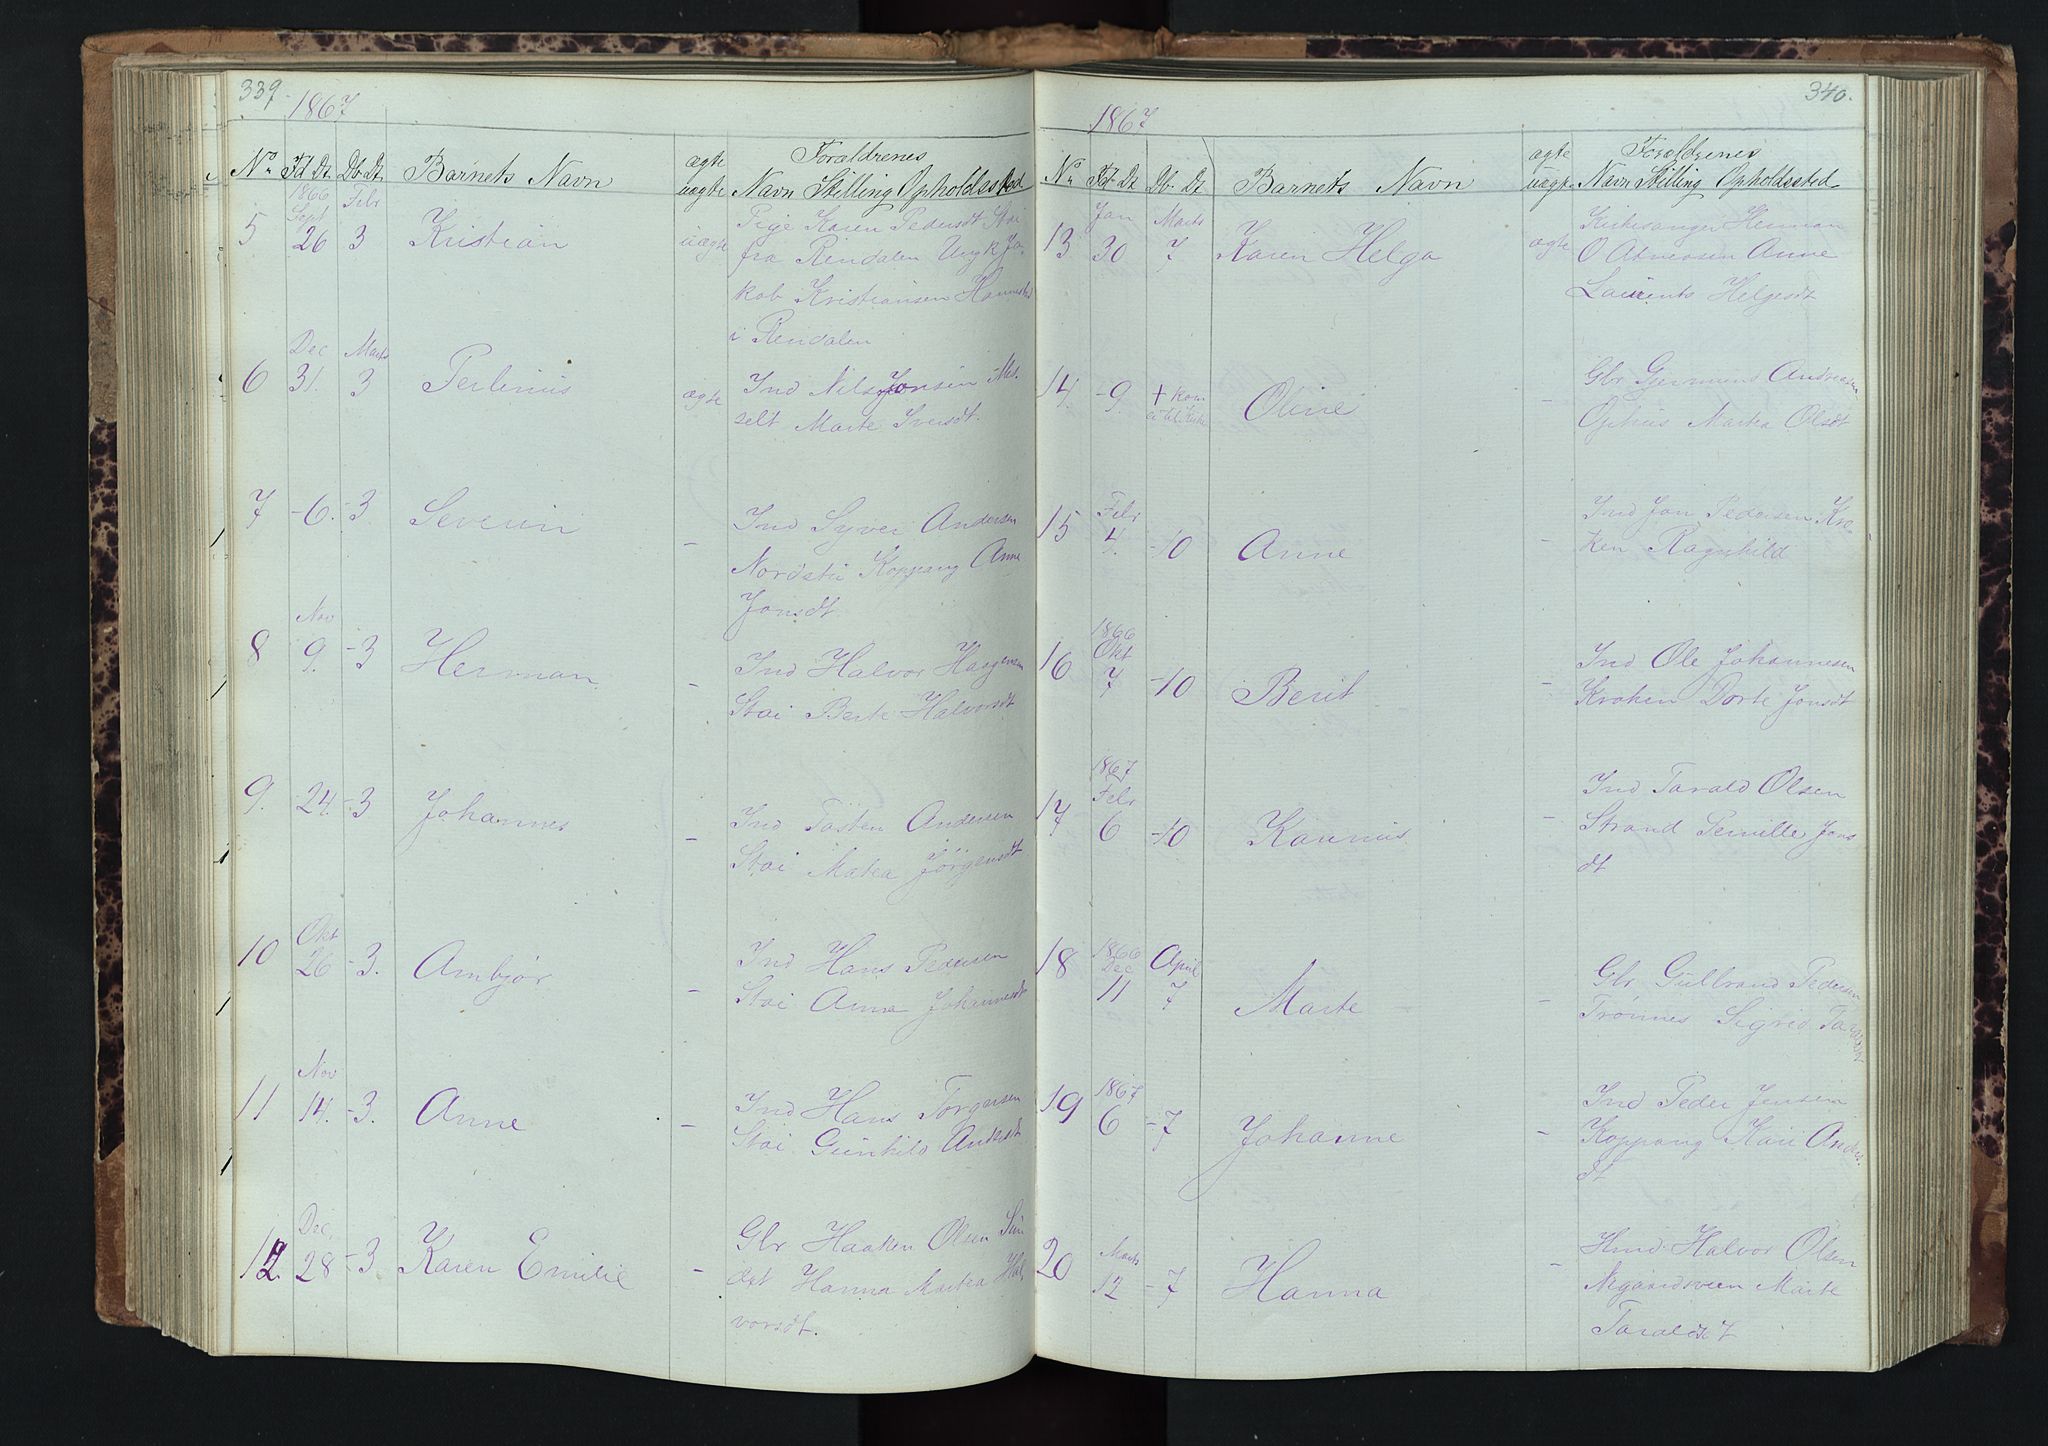 339.
1867
No Fd Dt. Db Dt. Barnets Navn ægte uægte Forældrenes Navn Stilling Opholdssted
5 1866 Sept 26 Febr 3 Kristian uægte Pige Karen Pedersdt Stai
fra Rendalen Ungk Ja-
kob Kristiansen Hanestad
i Rendalen
6 Dec 31. Marts 3 ægte Ind Nils Jonsen Mes-
selt Marte Iversdt.
7 -6. -3. Severin - Ind Syver Andersen
Nordstu Koppang Anne
Jonsdt
8 Nov 9. -3 Herman - Ind Halvor Haagensen
Stai Berte Halvorsdt
9. 24. -3 Johannes - Ind Tosten Andersen
Stai Matea Jörgensdt
10 Okt 26 -3. Ambjør - Ind Hans Pedersen
Stai Anna Johannesdt
11 Nov 14. -3. Anne - Ind Hans Torgersen
Stai Gunhild Andersdt
12. Dec. 28 -3. Karen Emilie - Gbr Haaken Olsen Sun
det Hanna Martea Hal
vorsdt.
340.
1867
No Fdt Dt Db Dt Barnets Navn ægte uægte Forældrenes Navn Stilling Opholdssted
13 Jan 30 Marts 7 Karen Helga ægte Kirkesanger Herman
O Anne
Helgesdt
14. -9. + kom ei til Kirke Oline - Gbr Andreasen
Ophus Martea Olsdt
15 Febr 4. -10 Anne - Ind Jon Pedersen Kro-
ken Ragnhild
16 1866 Okt 7 -10 Berit - Ind Ole Johannesen
Kroken Dorte Jonsdt
17 1867 Febr 6 -10 Karinus - Ind Tarald Olsen
Strand Pernille Jons
dt
18 1866 Dec 11 April 7 Marte - Gbr Gulbrand Pedersen
Trønnes Sigrid Taraldsdt
19 1867 6 -7 Johanne - Ind Peder Jensen
Koppang Kari Anders.
dt
20 Marts 12 -7 Hanna - Hmd Halvor Olsen
Negaardsveen Marte
Taraldsdt